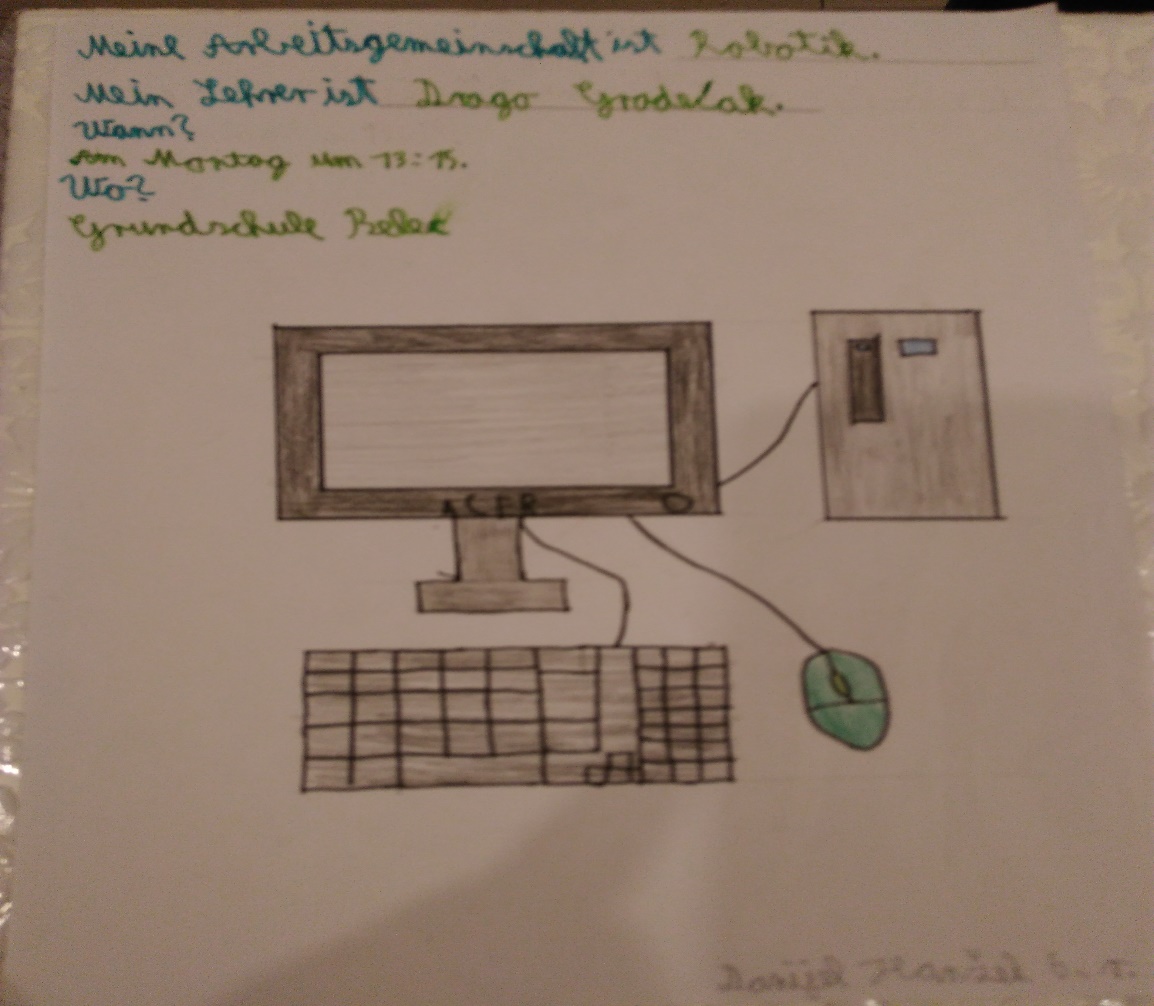 Meine Arbeitsgemeinschaft ist Robotik.
Mein Lehrer ist Drago
Wann?
Am Montag um 13:15.
Wo?
Grundschule Belec
ACER